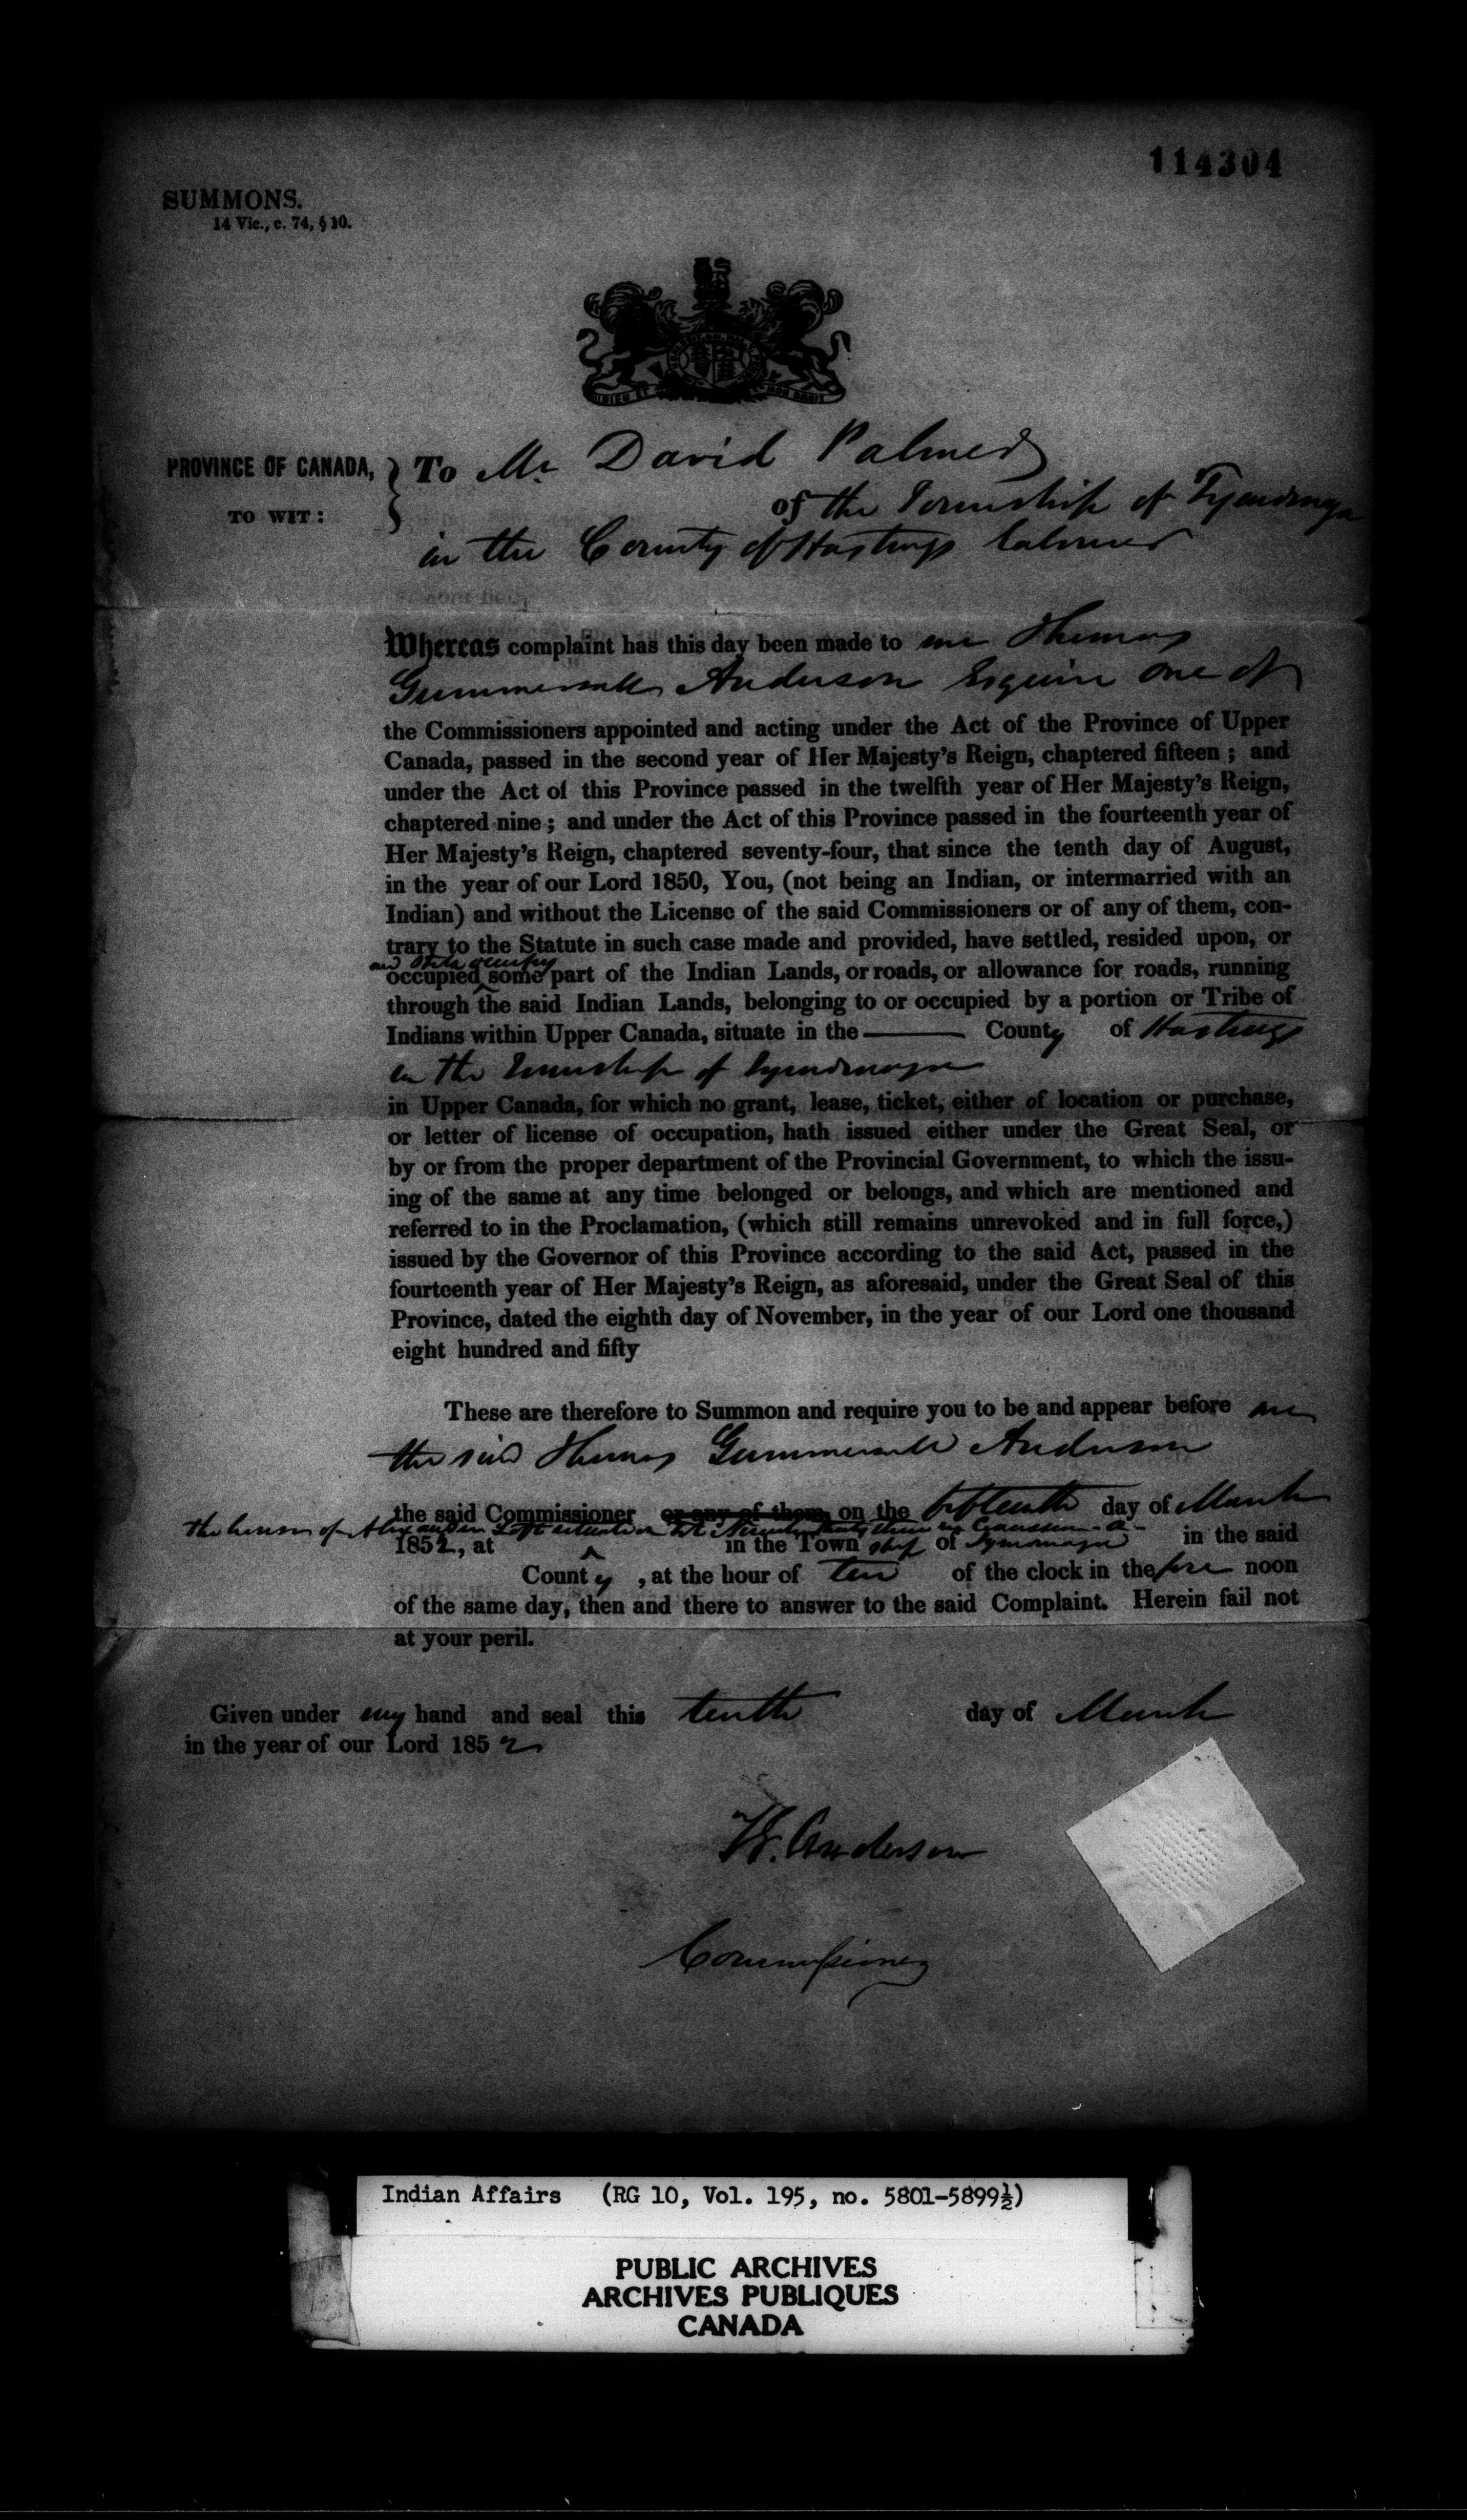 114304
SUMMONS.
14 Vic., c. 74, § 10.
DIEU ET MON DROIT
PROVINCE OF CANADA,
TO WIT:
To Mr David Palmer
of the Township of Tyendinaga
in the County of Hastings Labourer
Whereas complaint has this day been made to me Thomas
Gummersall Anderson Esquire one of
the Commissioners appointed and acting under the Act of the Province of Upper
Canada, passed in the second year of Her Majesty's Reign, chaptered fifteen; and
under the Act of this Province passed in the twelfth year of Her Majesty's Reign,
chaptered nine; and under the Act of this Province passed in the fourteenth year of
Her Majesty's Reign, chaptered seventy-four, that since the tenth day of August,
in the year of our Lord 1850, You, (not being an Indian, or intermarried with an
Indian) and without the License of the said Commissioners or of any of them, con-
trary to the Statute in such case made and provided, have settled, resided upon, or
and still occupy
occupied some part of the Indian Lands, or roads, or allowance for roads, running
through the said Indian Lands, belonging to or occupied by a portion or Tribe of
Indians within Upper Canada, situate in the County of Hastings
in the Township of Tyendinaga
in Upper Canada, for which no grant, lease, ticket, either of location or purchase,
or letter of license of occupation, hath issued either under the Great Seal, or
by or from the proper department of the Provincial Government, to which the issu-
ing of the same at any time belonged or belongs, and which are mentioned and
referred to in the Proclamation, (which still remains unrevoked and in full force,)
issued by the Governor of this Province according to the said Act, passed in the
fourteenth year of Her Majesty's Reign, as aforesaid, under the Great Seal of this
Province, dated the eighth day of November, in the year of our Lord one thousand
eight hundred and fifty
These are therefore to Summon and require you to be and appear before me
the said Thomas Gummersall Anderson
the said Commissioner or any of them, on the fifteenth day of March
the house of Alexander Loft situate on Lot Number thirty three in Concession A
1852, at in the Town ship of Tyendinaga in the said
County, at the hour of ten of the clock in the fore noon
of the same day, then and there to answer to the said Complaint. Herein fail not
at your peril.
Given under my hand and seal this tenth day of March
in the year of our Lord 1852
Anderson
Commissioner
Indian Affairs (RG 10, Vol. 195, no. 5801-5899½)
PUBLIC ARCHIVES
ARCHIVES PUBLIQUES
CANADA